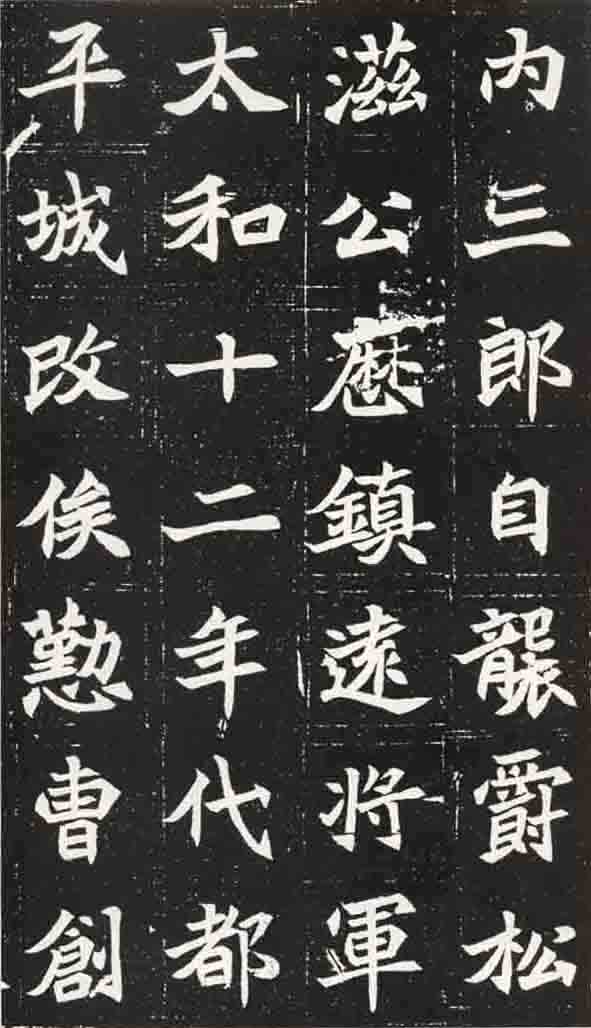 内三郎自襲爵松
滋公歴鎮遠將軍
太和十二年代都
平城改俟懃曹創